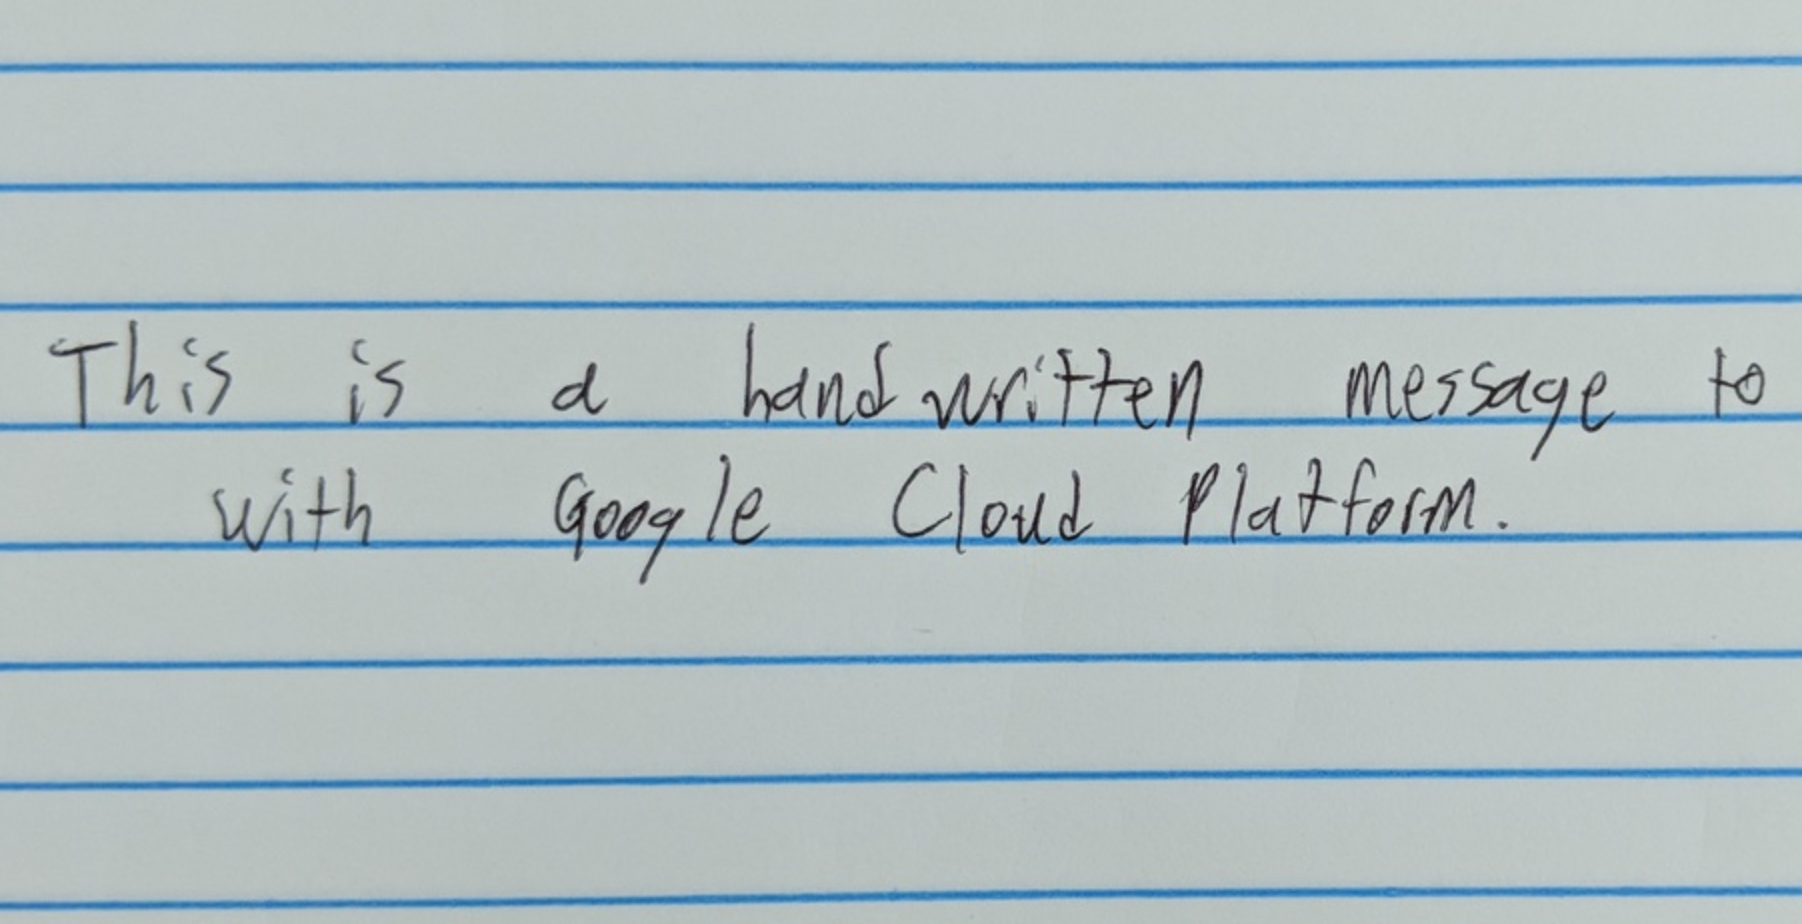 This is a handwritten message to
with Google Cloud Platform.